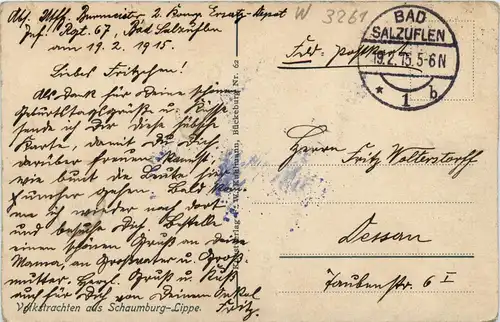 Abs. Utffz. Burmeister 2. Komp. Ersatz-Depot
Inf. Rgt. 67, Bad Salzuflen
am 19.2.1915.
Liebes Fritzchen!
Als Dank für Deine schönen
Geburtstagsgrüße und Küsse
sende ich Dir diese hübsche
Karte, damit Du Dich
darüber freuen kannst,
wie bunt die Leute hier
herum gehen. Bald komme
ich wieder nach dort
und besuche Dich. Bestelle
einen schönen Gruß an Deine
Mama, an Großvater u. Groß-
mutter. Herzl. Gruß u. Kuß
auch für Dich von Deinem Onkel
Fritz.
Volkstrachten aus Schaumburg-Lippe.
Bückeburg Nr. 62
W 3261
Feld-postkarte
BAD
SALZUFLEN
19.2.15.5-6N
* 1 b
Herrn
Fritz Wolterstorff
Dessau
Taubenstr. 6 I